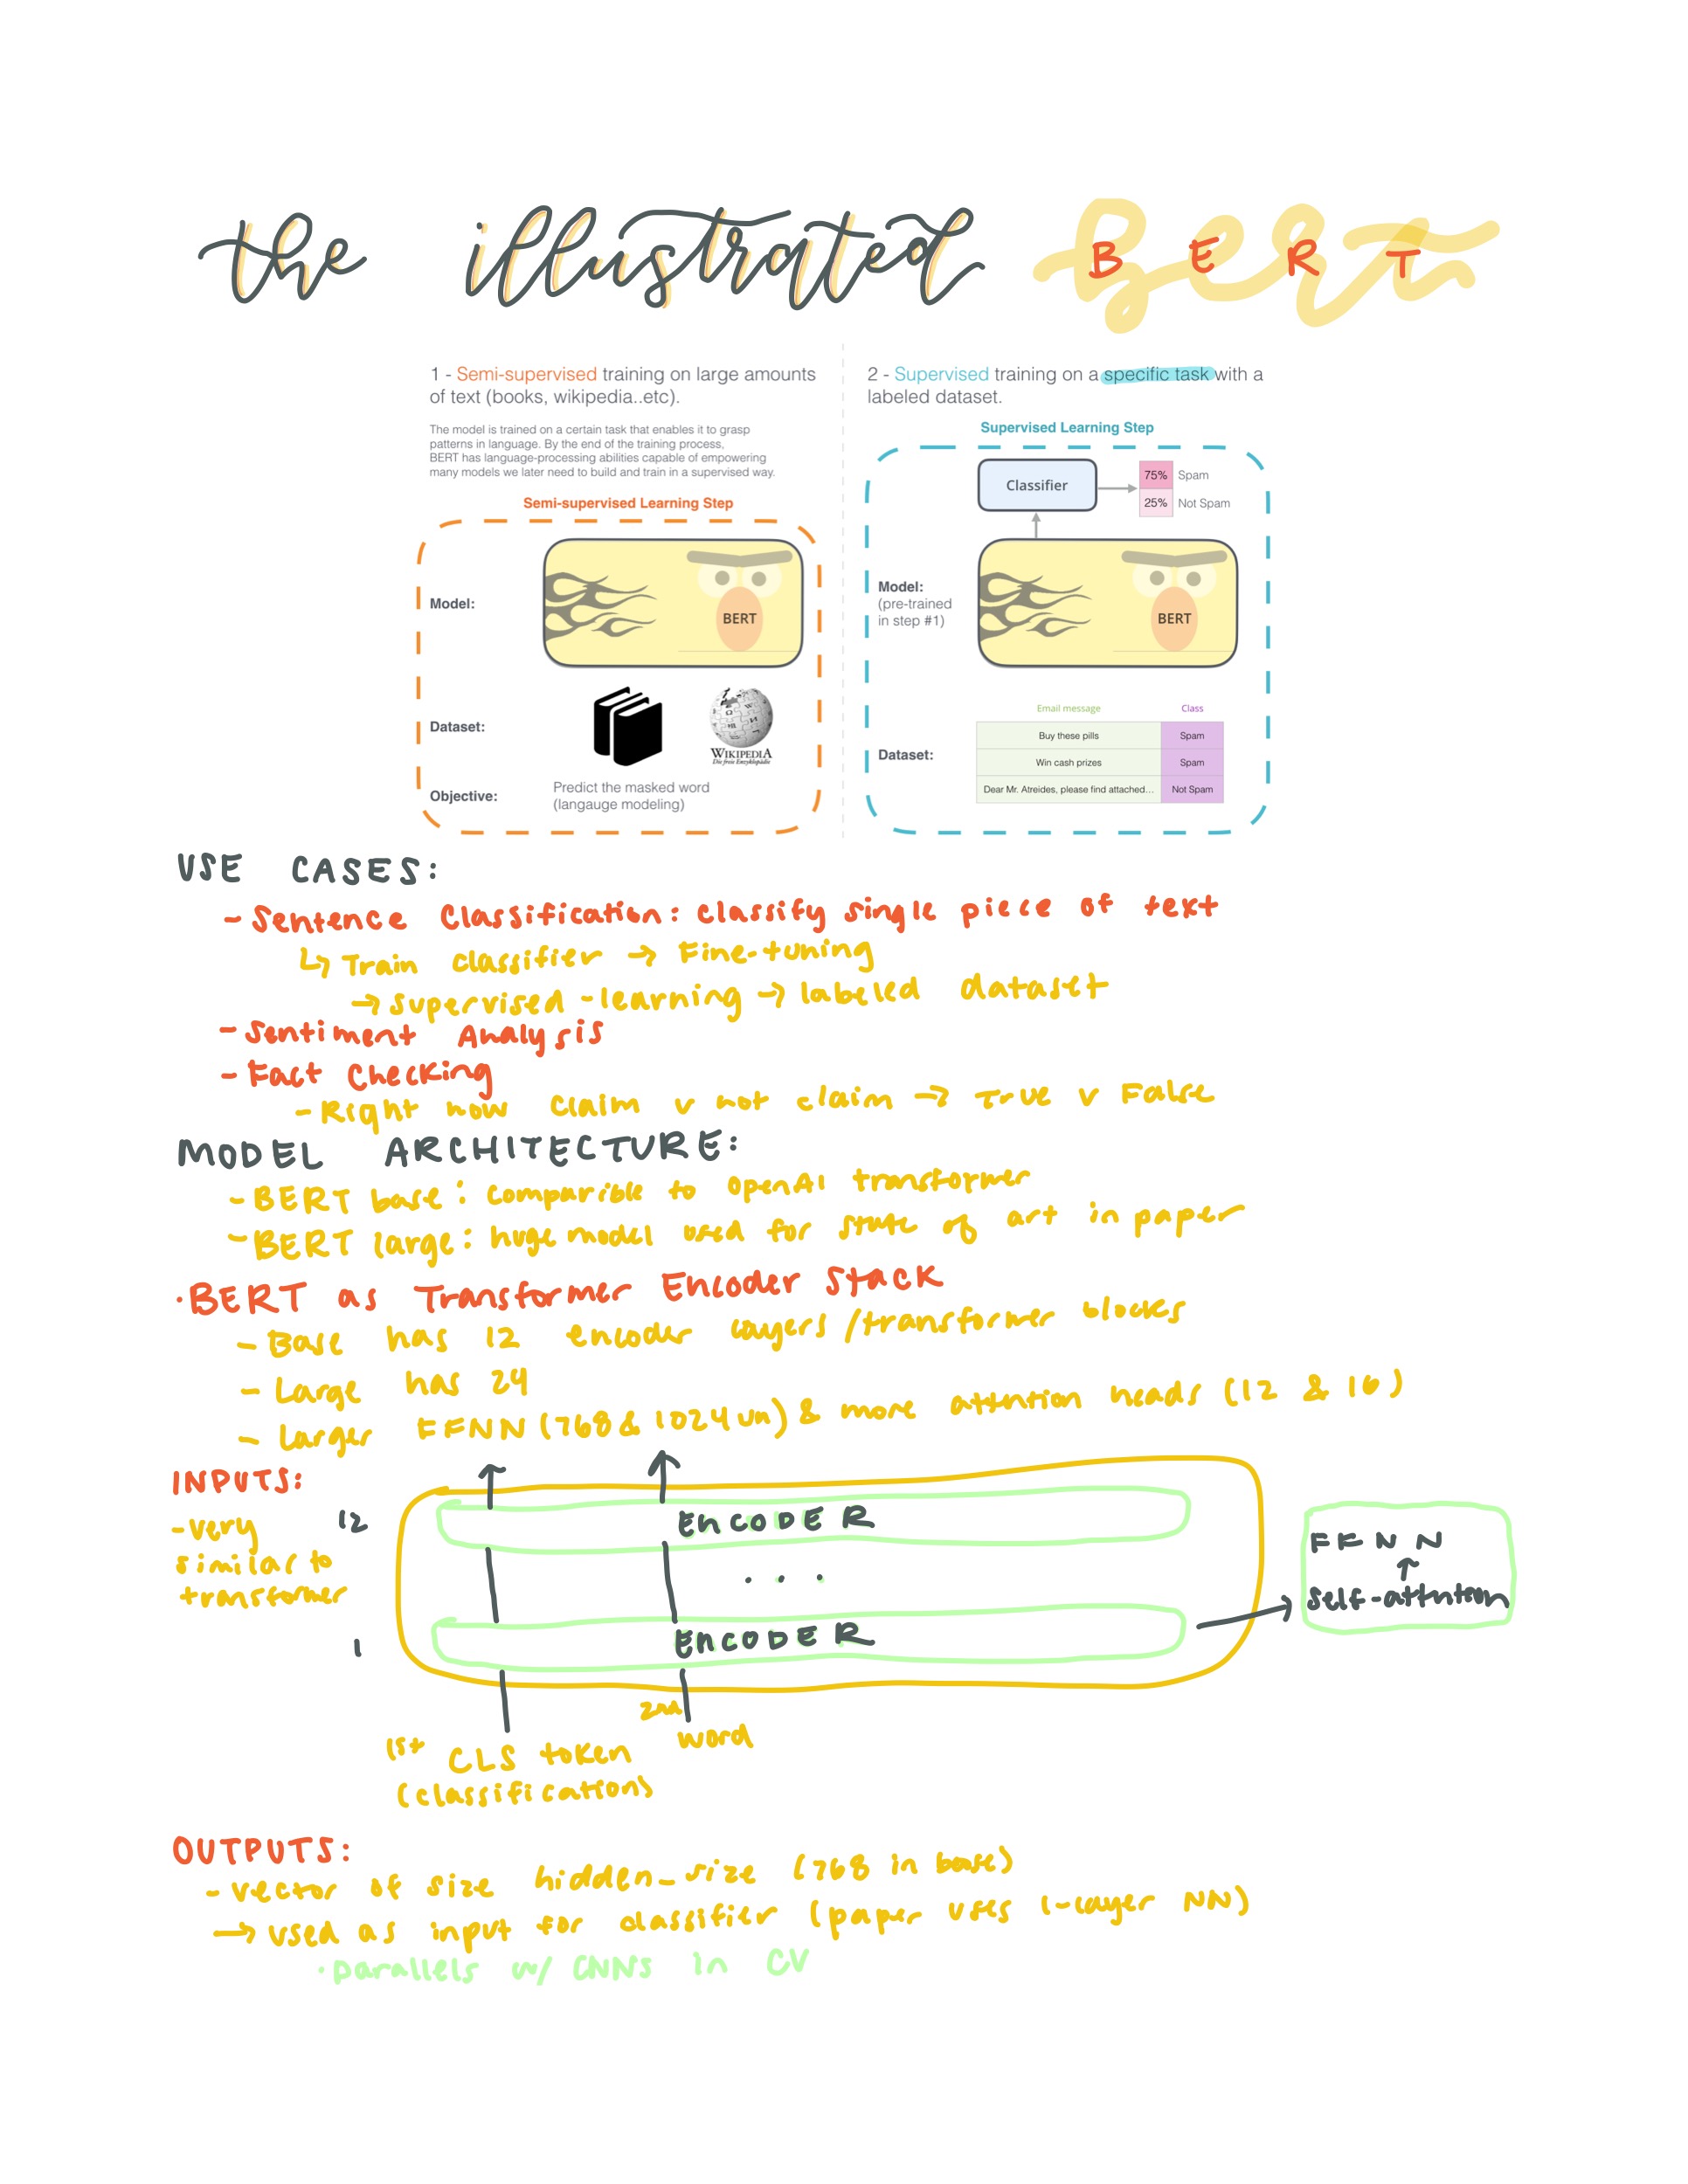 the illustrated BERT
1 - Semi-supervised training on large amounts
of text (books, wikipedia..etc).
The model is trained on a certain task that enables it to grasp
patterns in language. By the end of the training process,
BERT has language-processing abilities capable of empowering
many models we later need to build and train in a supervised way.
Semi-supervised Learning Step
Model:
BERT
Dataset:
WIKIPEDIA
Die freie Enzyklopädie
Objective:
Predict the masked word
(langauge modeling)
2 - Supervised training on a specific task with a
labeled dataset.
Supervised Learning Step
Classifier
75% Spam
25% Not Spam
Model:
(pre-trained
in step #1)
BERT
Email message Class
Dataset:
Buy these pills Spam
Win cash prizes Spam
Dear Mr. Atreides, please find attached... Not Spam
USE CASES:
- Sentence Classification: classify single piece of text
↳ Train classifier → Fine-tuning
→ supervised-learning → labeled dataset
- Sentiment Analysis
- Fact Checking
- Right now claim v not claim → True v False
MODEL ARCHITECTURE:
- BERT base: comparible to OpenAI transformer
- BERT large: huge model used for state of art in paper
· BERT as Transformer Encoder Stack
- Base has 12 encoder layers/transformer blocks
- Large has 24
- Larger FFNN (768 & 1024 un) & more attention heads (12 & 16)
INPUTS:
- very
similar to
transformer
12
ENCODER
...
1
ENCODER
FFNN
↑
Self-attention
1st CLS token
(classification)
2nd
word
OUTPUTS:
- vector of size hidden_size (768 in base)
→ used as input for classifier (paper uses 1-layer NN)
· parallels w/ CNNs in CV